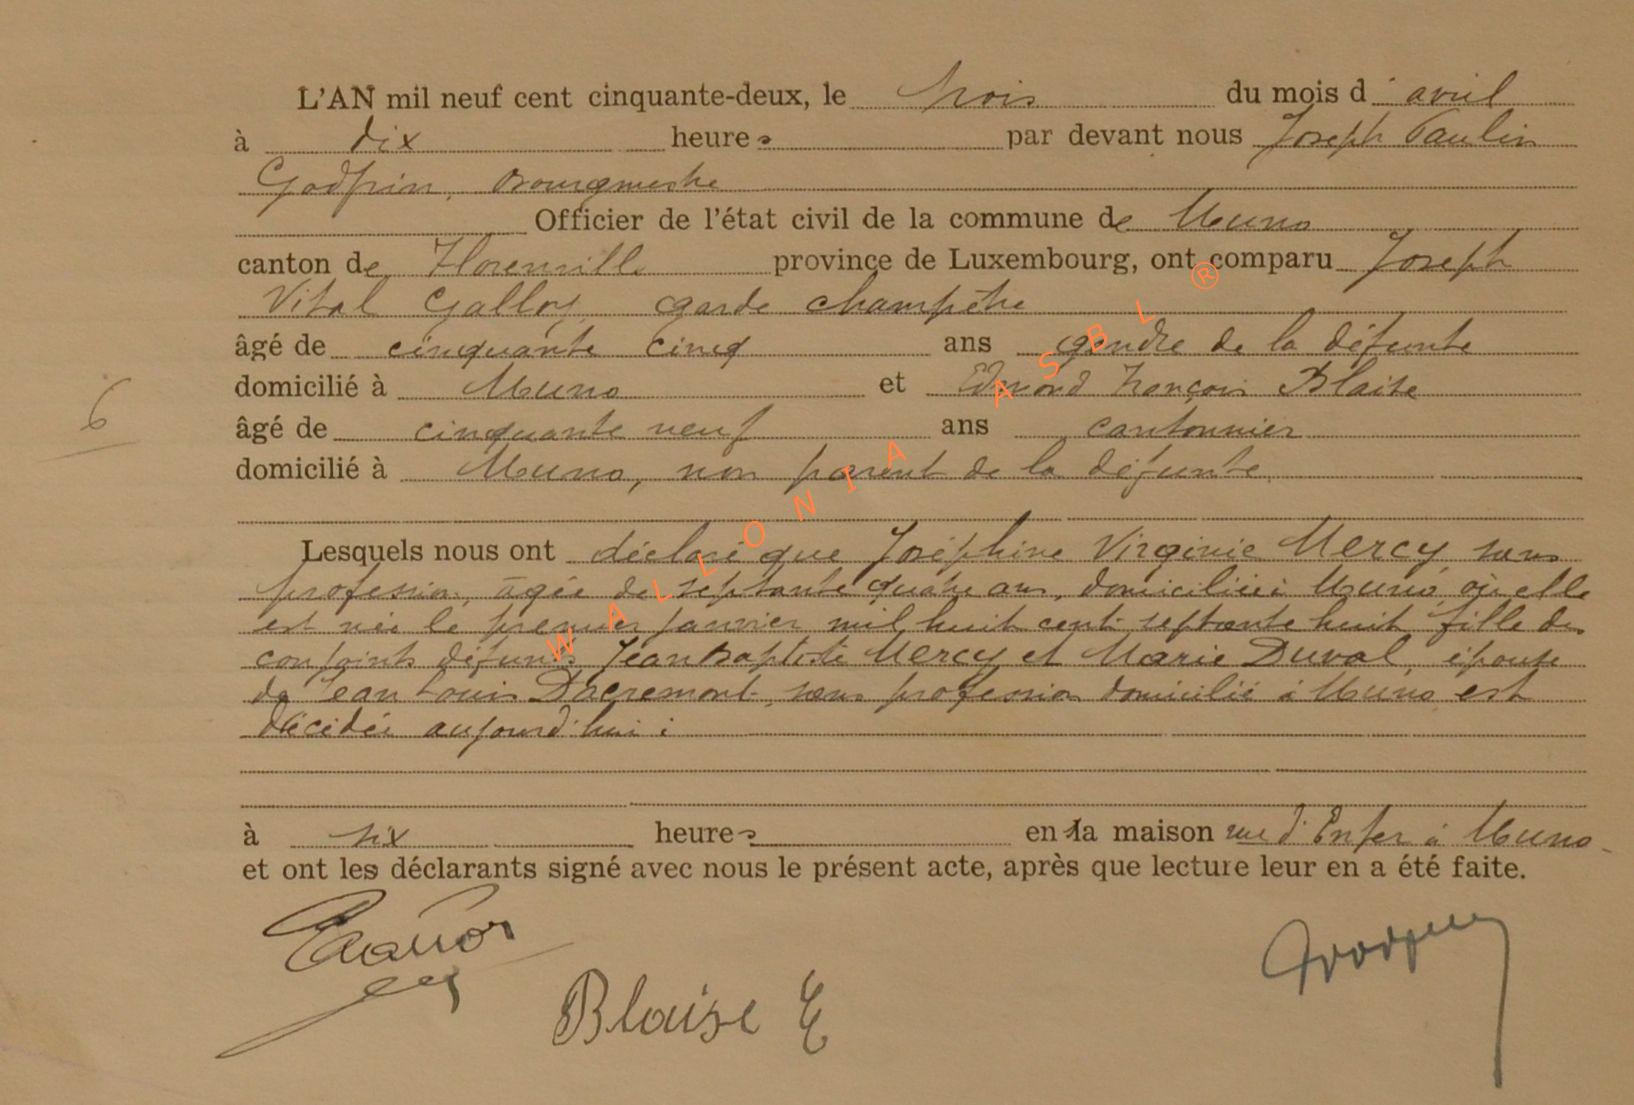 L'AN mil neuf cent cinquante-deux, le trois du mois d'avril
à dix heures par devant nous Joseph Paulin
Godfrin, bourgmestre
Officier de l'état civil de la commune de Muno
canton de Florenville province de Luxembourg, ont comparu Joseph
Vital Galloy garde champêtre
âgé de cinquante cinq ans gendre de la défunte
domicilié à Muno et Edmond François Blaise
6
âgé de cinquante neuf ans cantonnier
domicilié à Muno, non parent de la défunte
Lesquels nous ont déclaré que Joséphine Virginie Mercy, sans
profession, âgée de septante quatre ans, domiciliée à Muno, où elle
est née le premier janvier mil huit cent septante huit fille des
conjoints défunts Jean Baptiste Mercy et Marie Duval, épouse
de Jean Louis Dacremont, sans profession domicilié à Muno est
décédée aujourd'hui :
à six heures en la maison rue d'Enfer à Muno
et ont les déclarants signé avec nous le présent acte, après que lecture leur en a été faite.
Blaise E
WALLONIA ASBL ®